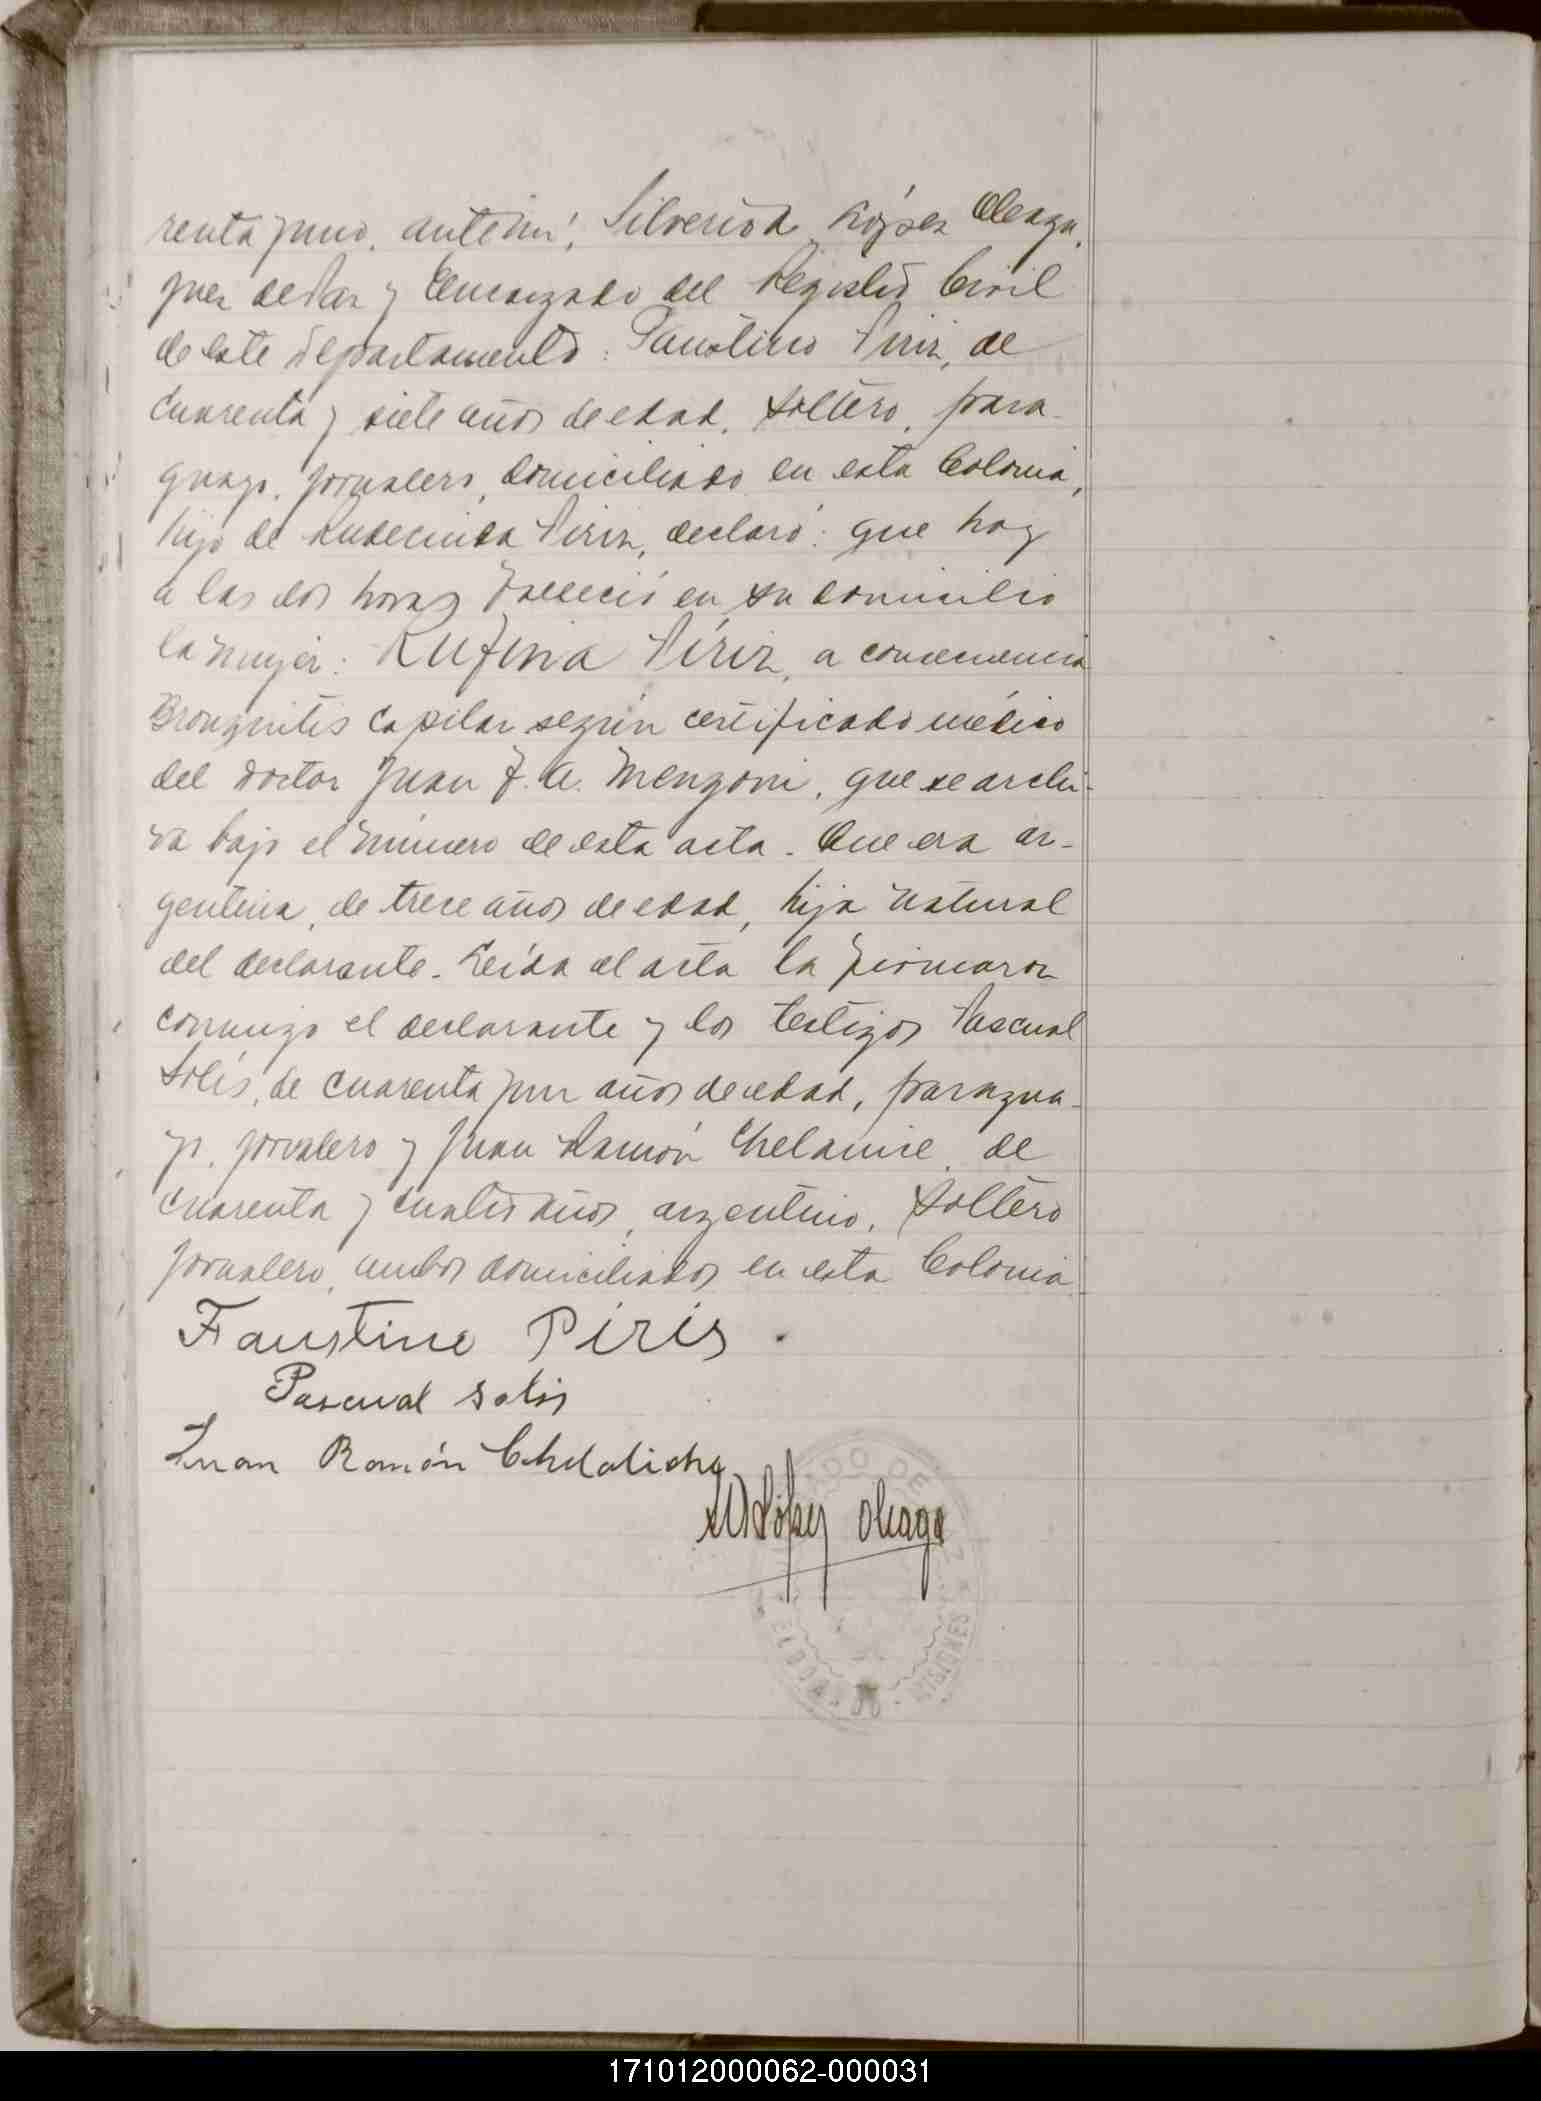 renta y uno, ante mí, Silverio A. López Oleaga,
juez de Paz y Encargado del Registro Civil
de este Departamento: Faustino Piriz, de
cuarenta y siete años de edad, soltero, para-
guayo, jornalero, domiciliado en esta Colonia,
hijo de Rudecinda Piriz, declaró: que hoy
a las dos horas falleció en su domicilio
la mujer: Rufina Piriz, a consecuencia
Bronquitis capilar según certificado médico
del doctor Juan F. A. Menzoni, que se archi-
va bajo el número de esta acta. Que era ar-
gentina, de trece años de edad, hija natural
del declarante. Leída el acta la firmaron
conmigo el declarante y los testigos Pascual
Solis, de cuarenta y un años de edad, paragua-
yo, jornalero y Juan Ramón Chelanire, de
cuarenta y cuatro años, argentino, soltero
jornalero, ambos domiciliados en esta Colonia
Faustino Piris.
Pascual Solis
Juan Ramón
López Oleaga
ADO DE
ELDORADO - MISIONES
171012000062-000031